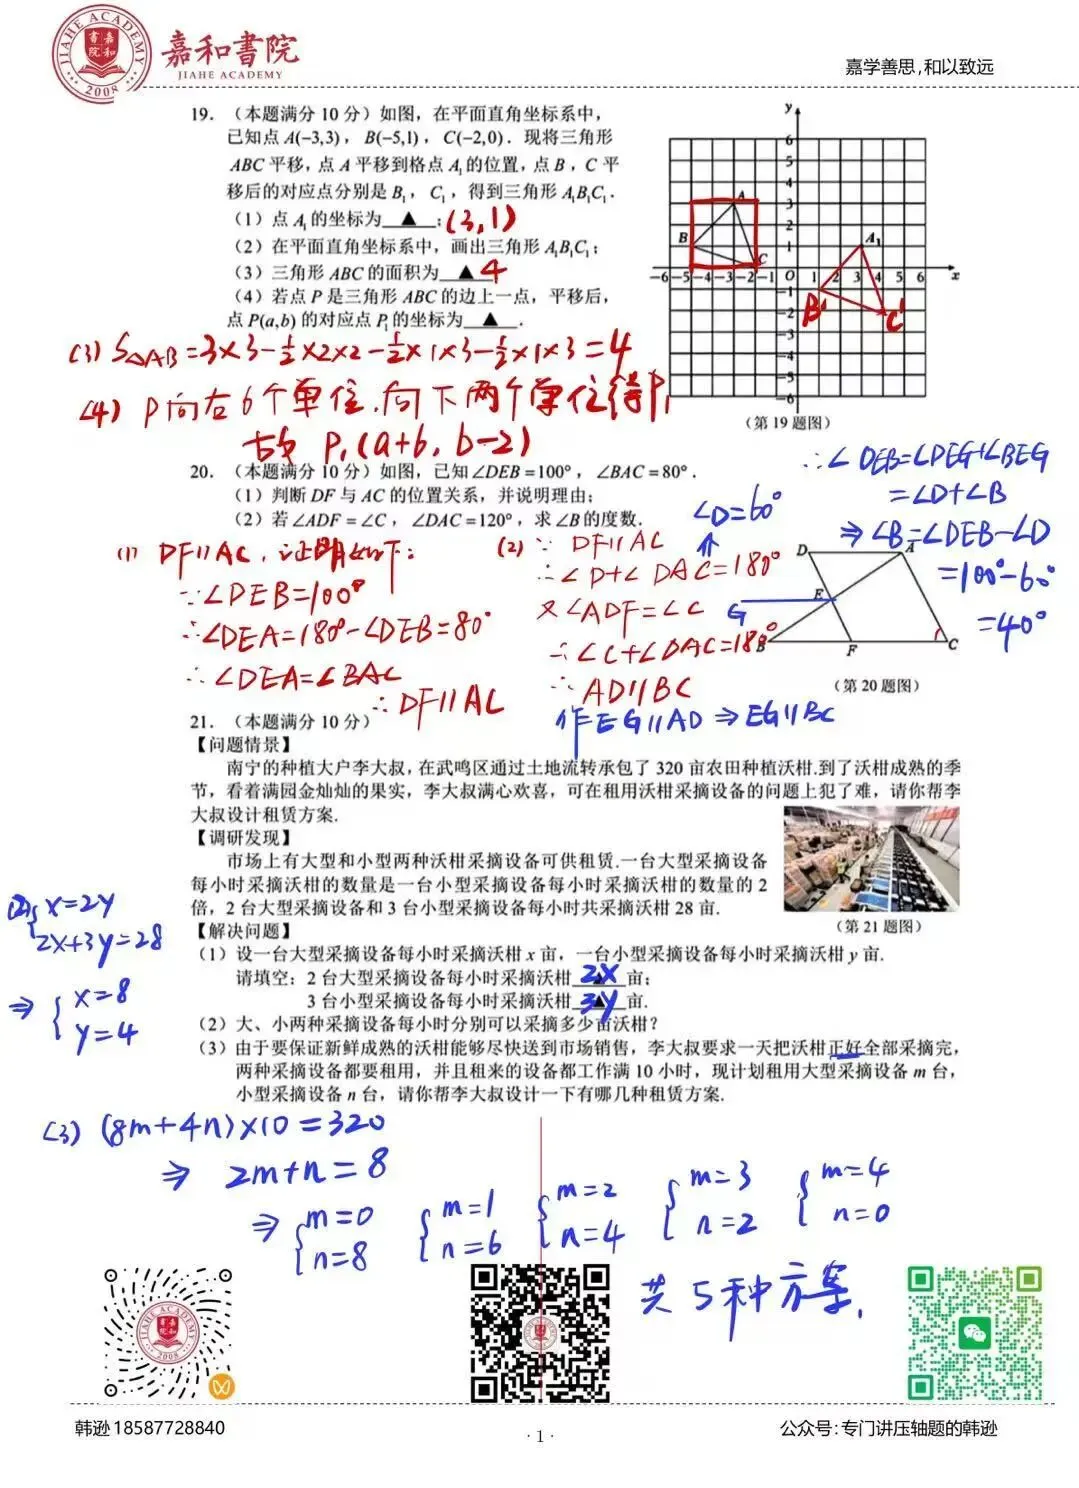 JIAHE ACADEMY
嘉和書院
2008
嘉和書院
JIAHE ACADEMY
嘉学善思,和以致远
19. （本题满分 10 分）如图，在平面直角坐标系中，
已知点 A(−3,3)，B(−5,1)，C(−2,0)．现将三角形
ABC 平移，点 A 平移到格点 A₁的位置，点 B，C 平
移后的对应点分别是 B₁，C₁，得到三角形 A₁B₁C₁．
（1）点 A₁的坐标为 ▲ ；(3,1)
（2）在平面直角坐标系中，画出三角形 A₁B₁C₁；
（3）三角形 ABC 的面积为 ▲ 4
（4）若点 P 是三角形 ABC 的边上一点，平移后，
点 P(a,b) 的对应点 P₁的坐标为 ▲ ．
y
6
5
4
3
2
1
A
B
C
A₁
B'
C'
−6 −5 −4 −3 −2 −1 O 1 2 3 4 5 6 x
−1
−2
−3
−4
−5
−6
（第 19 题图）
(3) S△AB=3×3−½×2×2−½×1×3−½×1×3=4
(4) P向右6个单位，向下两个单位得P₁
故 P₁(a+6, b−2)
20. （本题满分 10 分）如图，已知 ∠DEB=100°，∠BAC=80°．
（1）判断 DF 与 AC 的位置关系，并说明理由；
（2）若 ∠ADF=∠C，∠DAC=120°，求∠B 的度数．
(1) DF∥AC，证明如下：
∵∠DEB=100°
∴∠DEA=180°−∠DEB=80°
∴∠DEA=∠BAC
∴DF∥AC
(2) ∵ DF∥AC
∴∠D+∠DAC=180°
⇒
∠D=60°
又∠ADF=∠C
∴∠C+∠DAC=180°
∴ AD∥BC
作EG∥AD ⇒ EG∥BC
∴∠DEB=∠DEG+∠BEG
=∠D+∠B
⇒∠B=∠DEB−∠D
=100°−60°
=40°
D A
E
G
B F C
（第 20 题图）
21. （本题满分 10 分）
【问题情景】
南宁的种植大户李大叔，在武鸣区通过土地流转承包了 320 亩农田种植沃柑.到了沃柑成熟的季
节，看着满园金灿灿的果实，李大叔满心欢喜，可在租用沃柑采摘设备的问题上犯了难，请你帮李
大叔设计租赁方案.
【调研发现】
市场上有大型和小型两种沃柑采摘设备可供租赁.一台大型采摘设备
每小时采摘沃柑的数量是一台小型采摘设备每小时采摘沃柑的数量的 2
倍，2 台大型采摘设备和 3 台小型采摘设备每小时共采摘沃柑 28 亩.
（第 21 题图）
【解决问题】
（1）设一台大型采摘设备每小时采摘沃柑 x 亩，一台小型采摘设备每小时采摘沃柑 y 亩.
请填空：2 台大型采摘设备每小时采摘沃柑 ▲ 2x 亩；
3 台小型采摘设备每小时采摘沃柑 ▲ 3y 亩.
（2）大、小两种采摘设备每小时分别可以采摘多少亩沃柑？
（3）由于要保证新鲜成熟的沃柑能够尽快送到市场销售，李大叔要求一天把沃柑正好全部采摘完，
两种采摘设备都要租用，并且租来的设备都工作满 10 小时，现计划租用大型采摘设备 m 台，
小型采摘设备 n 台，请你帮李大叔设计一下有哪几种租赁方案.
(2) { x=2y
2x+3y=28
⇒ { x=8
y=4
(3) (8m+4n)×10=320
⇒ 2m+n=8
⇒ { m=0 { m=1 { m=2 { m=3 { m=4
n=8 n=6 n=4 n=2 n=0
共5种方案.
JIAHE ACADEMY
嘉和書院
2008
韩逊 18587728840
· 1 ·
公众号: 专门讲压轴题的韩逊